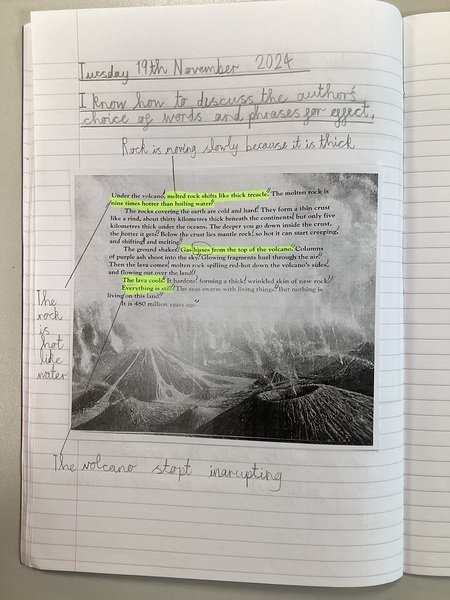 Tuesday 19th November 2024
I know how to discuss the author's
choice of words and phrases for effect.
Rock is moving slowly because it is thick
Under the volcano, melted rock shifts like thick treacle. The molten rock is
nine times hotter than boiling water.
The rocks covering the earth are cold and hard. They form a thin crust
like a rind, about thirty kilometres thick beneath the continents, but only five
kilometres thick under the oceans. The deeper you go down inside the
crust, the hotter it gets. Below the crust lies mantle rock, so hot it can start creeping,
and shifting, and melting.
The ground shakes. Gas hisses from the top of the volcano. Columns
of purple ash shoot into the sky. Glowing fragments hurl through the air.
Then the lava comes, molten rock spilling red-hot down the volcano's sides,
and flowing out over the land.
The lava cools. It hardens, forming a thick, wrinkled skin of new rock.
Everything is still. The seas swarm with living things. But nothing is
living on this land.
It is 480 million years ago.
The
rock
is
hot
like
water
The volcano stopt inarupting